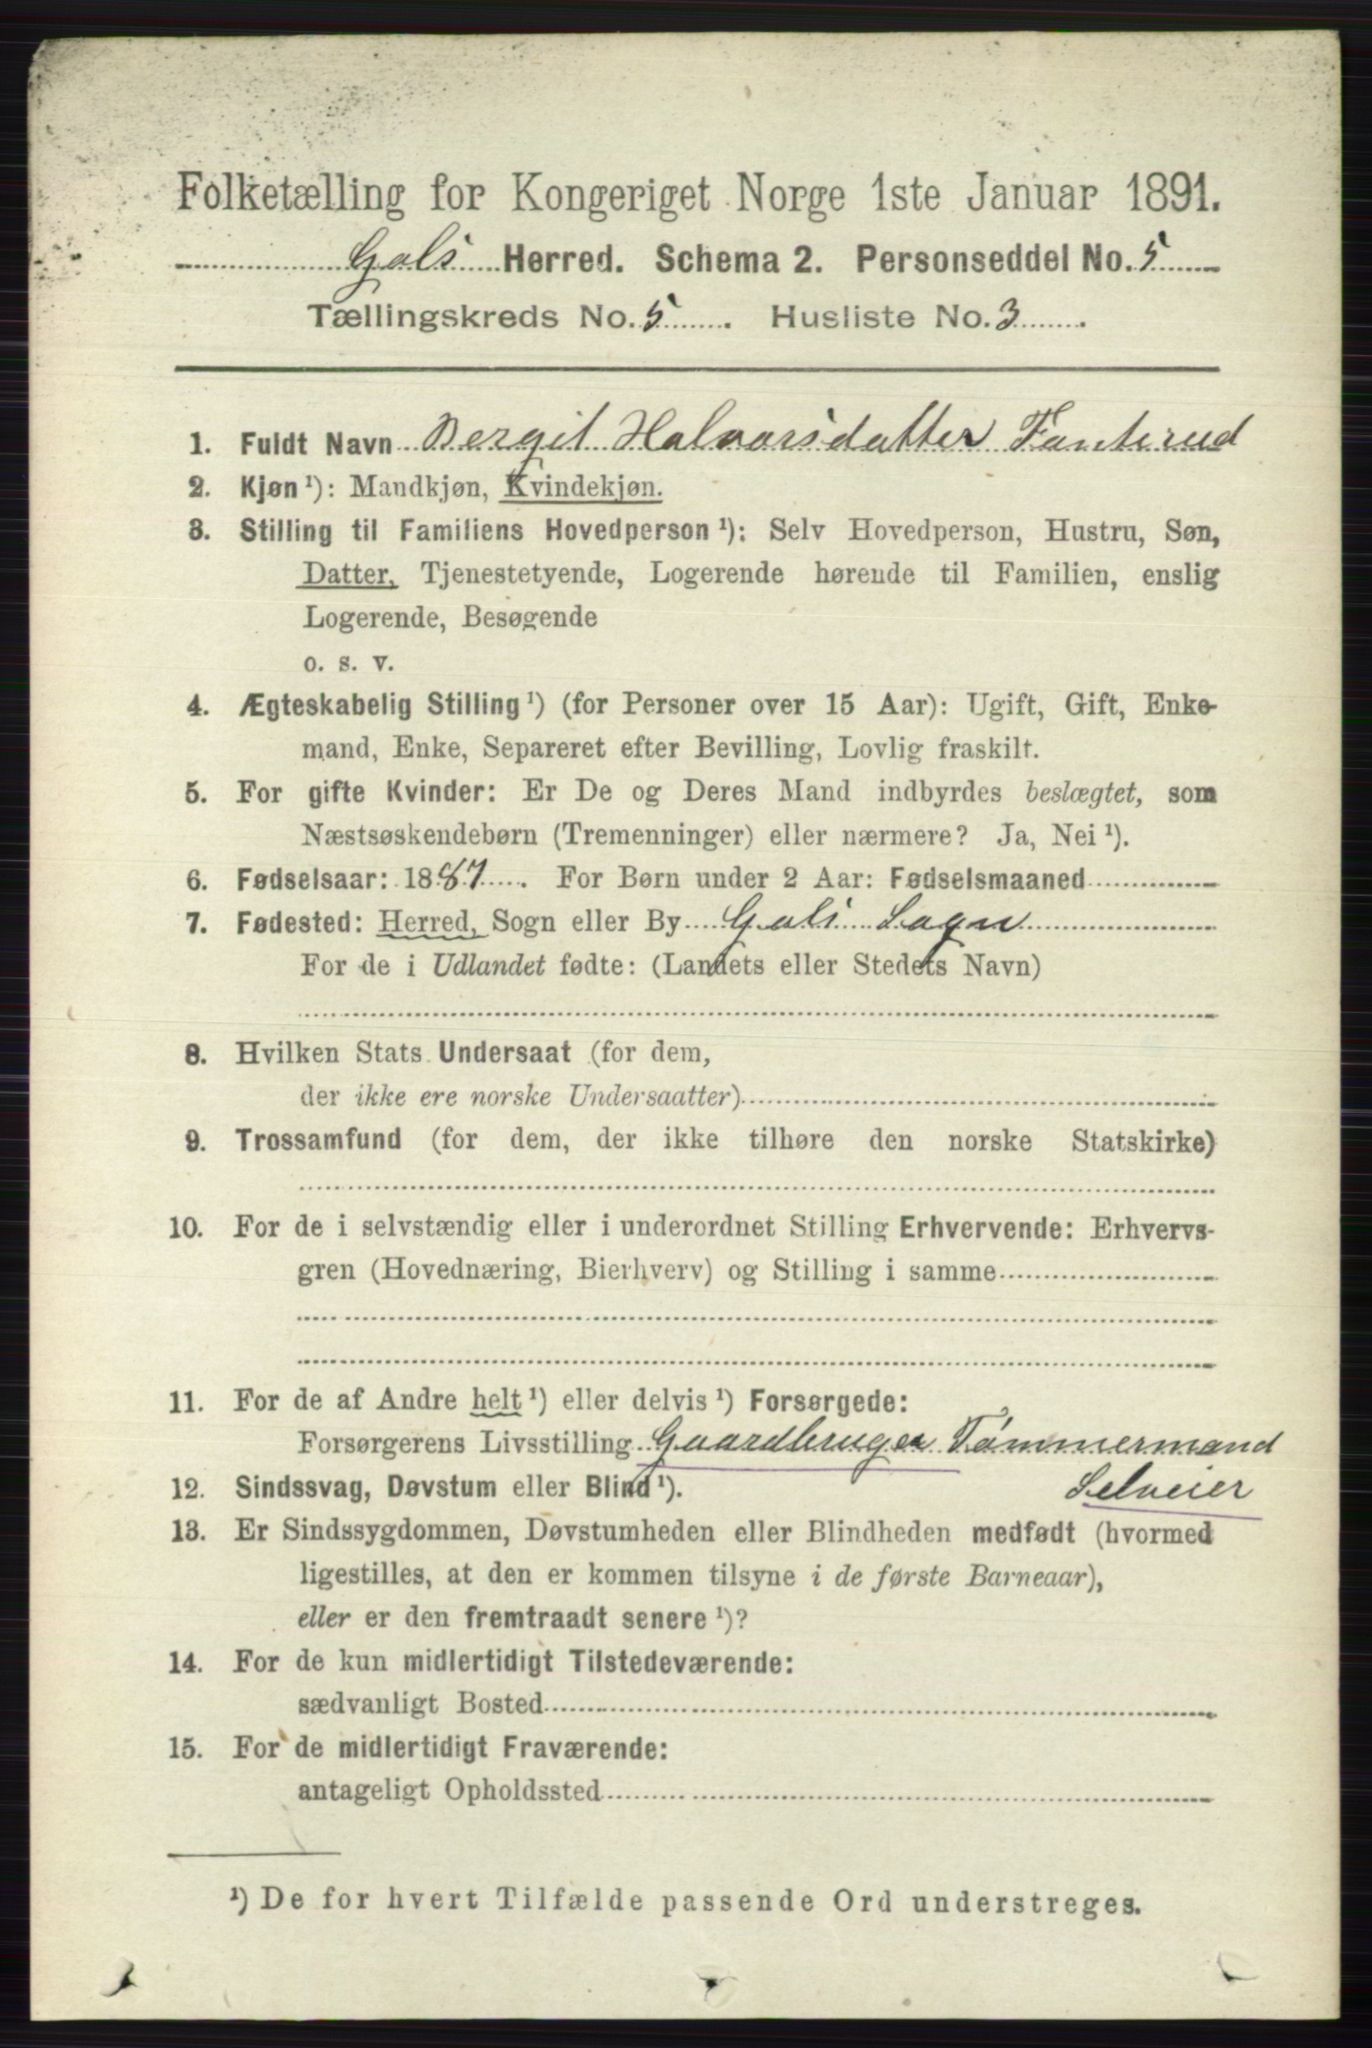 Folketælling for Kongeriget Norge 1ste Januar 1891.
Gols Herred. Schema 2. Personseddel No. 5
Tællingskreds No. 5. Husliste No. 3.
1. Fuldt Navn Bergit Halvorsdatter Fanterud
2. Kjøn ¹): Mandkjøn, Kvindekjøn.
3. Stilling til Familiens Hovedperson ¹): Selv Hovedperson, Hustru, Søn,
Datter, Tjenestetyende, Logerende hørende til Familien, enslig
Logerende, Besøgende
o. s. v.
4. Ægteskabelig Stilling ¹) (for Personer over 15 Aar): Ugift, Gift, Enke-
mand, Enke, Separeret efter Bevilling, Lovlig fraskilt.
5. For gifte Kvinder: Er De og Deres Mand indbyrdes beslægtet, som
Næstsøskendebørn (Tremenninger) eller nærmere? Ja, Nei ¹).
6. Fødselsaar: 1887. For Børn under 2 Aar: Fødselsmaaned
7. Fødested: Herred, Sogn eller By Gols Sogn
For de i Udlandet fødte: (Landets eller Stedets Navn)
8. Hvilken Stats Undersaat (for dem,
der ikke ere norske Undersaatter)
9. Trossamfund (for dem, der ikke tilhøre den norske Statskirke)
10. For de i selvstændig eller i underordnet Stilling Erhvervende: Erhvervs-
gren (Hovednæring, Bierhverv) og Stilling i samme
11. For de af Andre helt ¹) eller delvis ¹) Forsørgede:
Forsørgerens Livsstilling Gaardbruger Tømmermand
12. Sindssvag, Døvstum eller Blind ¹). Selveier
13. Er Sindssygdommen, Døvstumheden eller Blindheden medfødt (hvormed
ligestilles, at den er kommen tilsyne i de første Barneaar),
eller er den fremtraadt senere ¹)?
14. For de kun midlertidigt Tilstedeværende:
sædvanligt Bosted
15. For de midlertidigt Fraværende:
antageligt Opholdssted
¹) De for hvert Tilfælde passende Ord understreges.